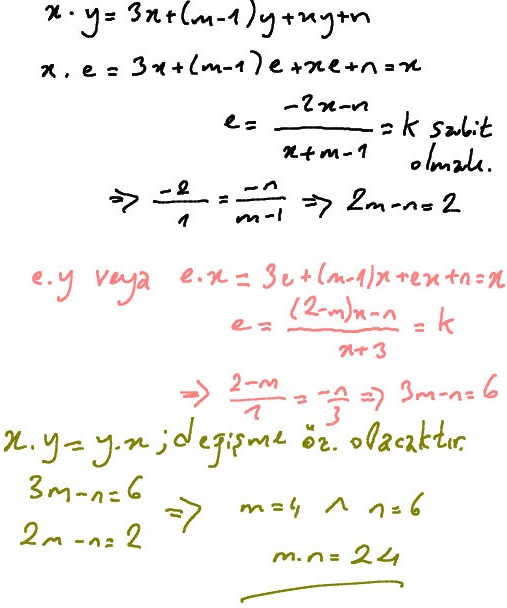 x · y = 3x+(m-1)y+xy+n
x . e = 3x+(m-1)e+xe+n=x
e = \frac{-2x-n}{x+m-1} = k sabit olmalı.
⇒ \frac{-2}{1} = \frac{-n}{m-1} ⇒ 2m-n=2
e.y veya e.x = 3e+(m-1)x+ex+n=x
e = \frac{(2-m)x-n}{x+3} = k
⇒ \frac{2-m}{1} = \frac{-n}{3} ⇒ 3m-n=6
x.y = y.x ; değişme öz. olacaktır.
3m-n=6
2m-n=2
⇒ m=4 ∧ n=6
m.n = 24